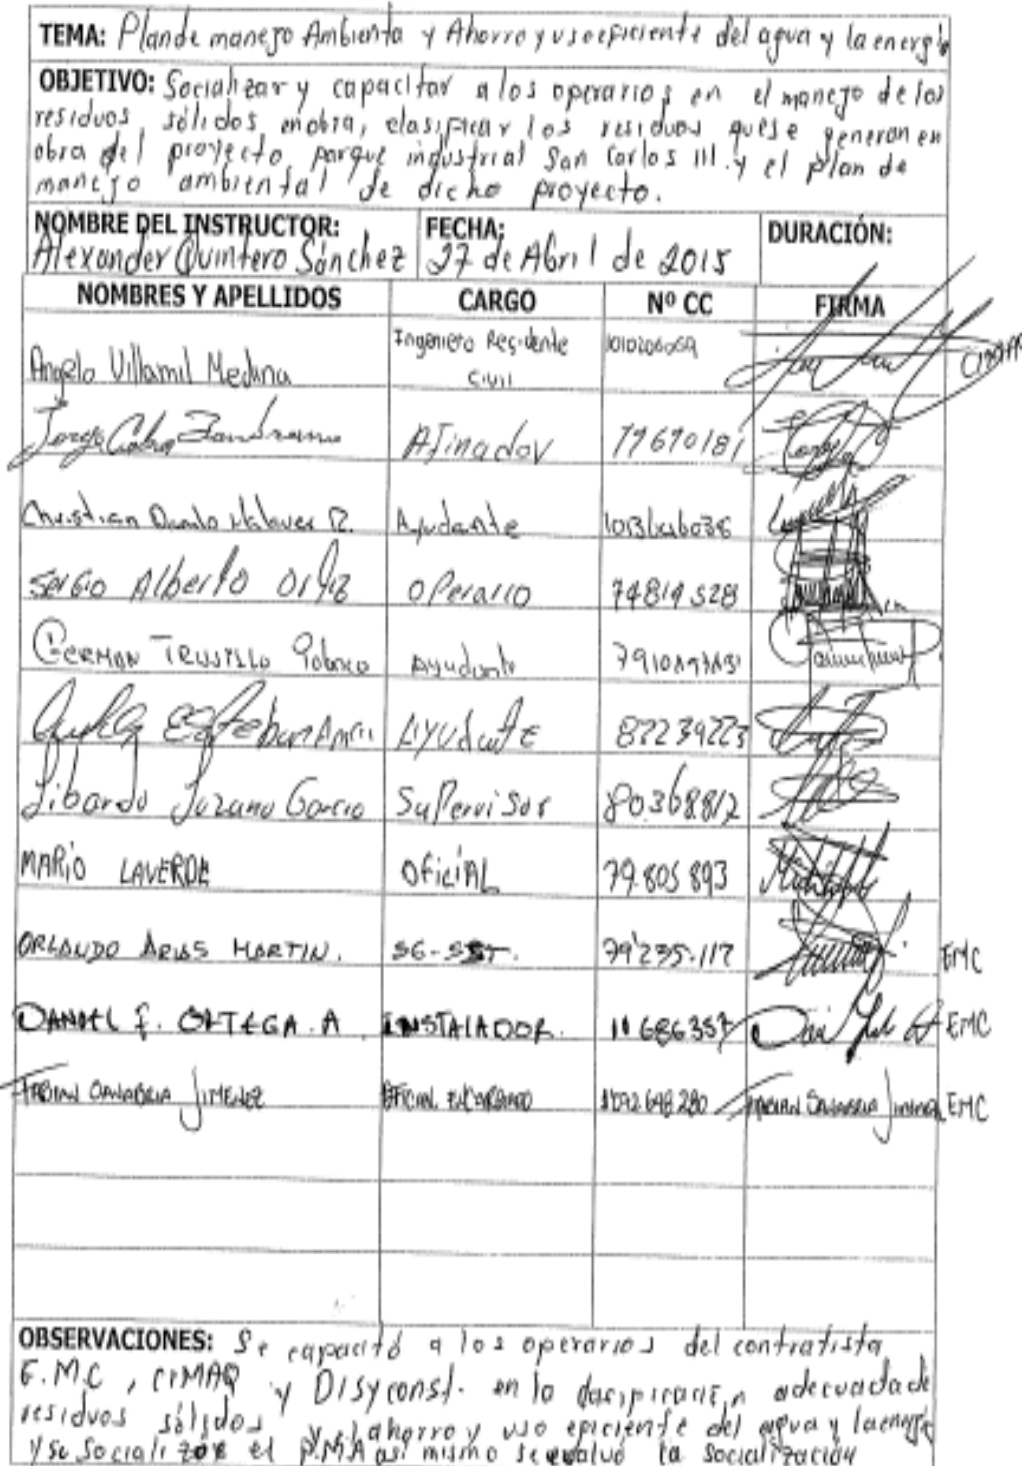 TEMA: Plan de manejo Ambienta y Ahorro y uso eficiente del agua y la energia
OBJETIVO: Socializar y capacitar a los operarios en el manejo de los
residuos sólidos en obra, clasificar los residuos que se generan en
obra del proyecto parque industrial San Carlos III. y el plan de
manejo ambiental de dicho proyecto.
NOMBRE DEL INSTRUCTOR: FECHA: DURACIÓN:
Alexander Quintero Sánchez 27 de Abril de 2015
NOMBRES Y APELLIDOS CARGO Nº CC FIRMA
Angelo Villamil Medina Ingeniero Residente Civil 1010206069
Jorge Zambrano Afinador 79670181
Christian Danilo Ayudante
SERGIO Alberto Ortiz OPerario 74814528
GERMAN TRUJILLO Ayudante
Esteban Ayudante 82239223
Libardo Lozano Garcia SuPervisor 80.368.812
MARIO LAVERDE OficiAL 79.805 893
ORLANDO ARIAS MARTIN. SG-SST. 79'235.117 EMC
DANIEL F. ORTEGA.A INSTALADOR. 11686357 EMC
FABIAN SANABRIA JIMENEZ OFICIAL ENCARGADO 1092648280 FABIAN SANABRIA Jimenez EMC
OBSERVACIONES: Se capacitó a los operarios del contratista
E.M.C, CIMAQ y Disyconst. en la adecuada de
residuos sólidos y ahorro y uso eficiente del agua y la energia
y se socializo el P.M.A así mismo se evaluó la socialización